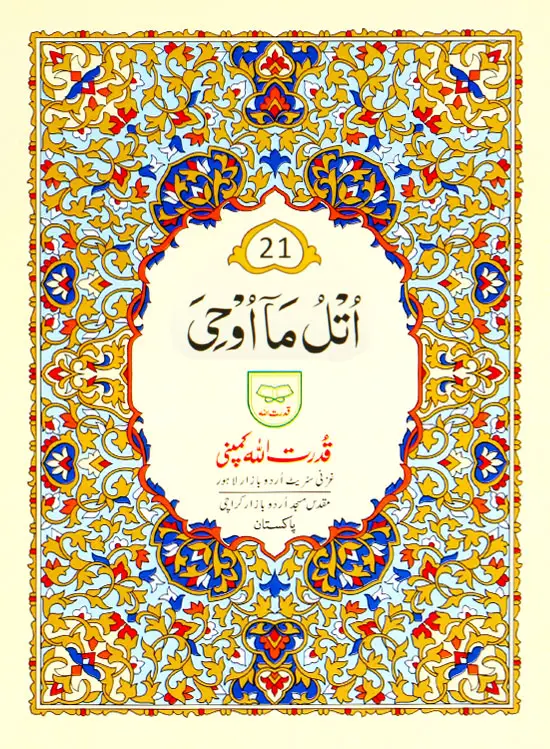 21
اُتْلُ مَآ اُوْحِیَ
قدرت اللہ
قُدرت اللہ کمپنی
غزنی سٹریٹ اُردو بازار لاہور
مقدس مسجد اُردو بازار کراچی
پاکستان